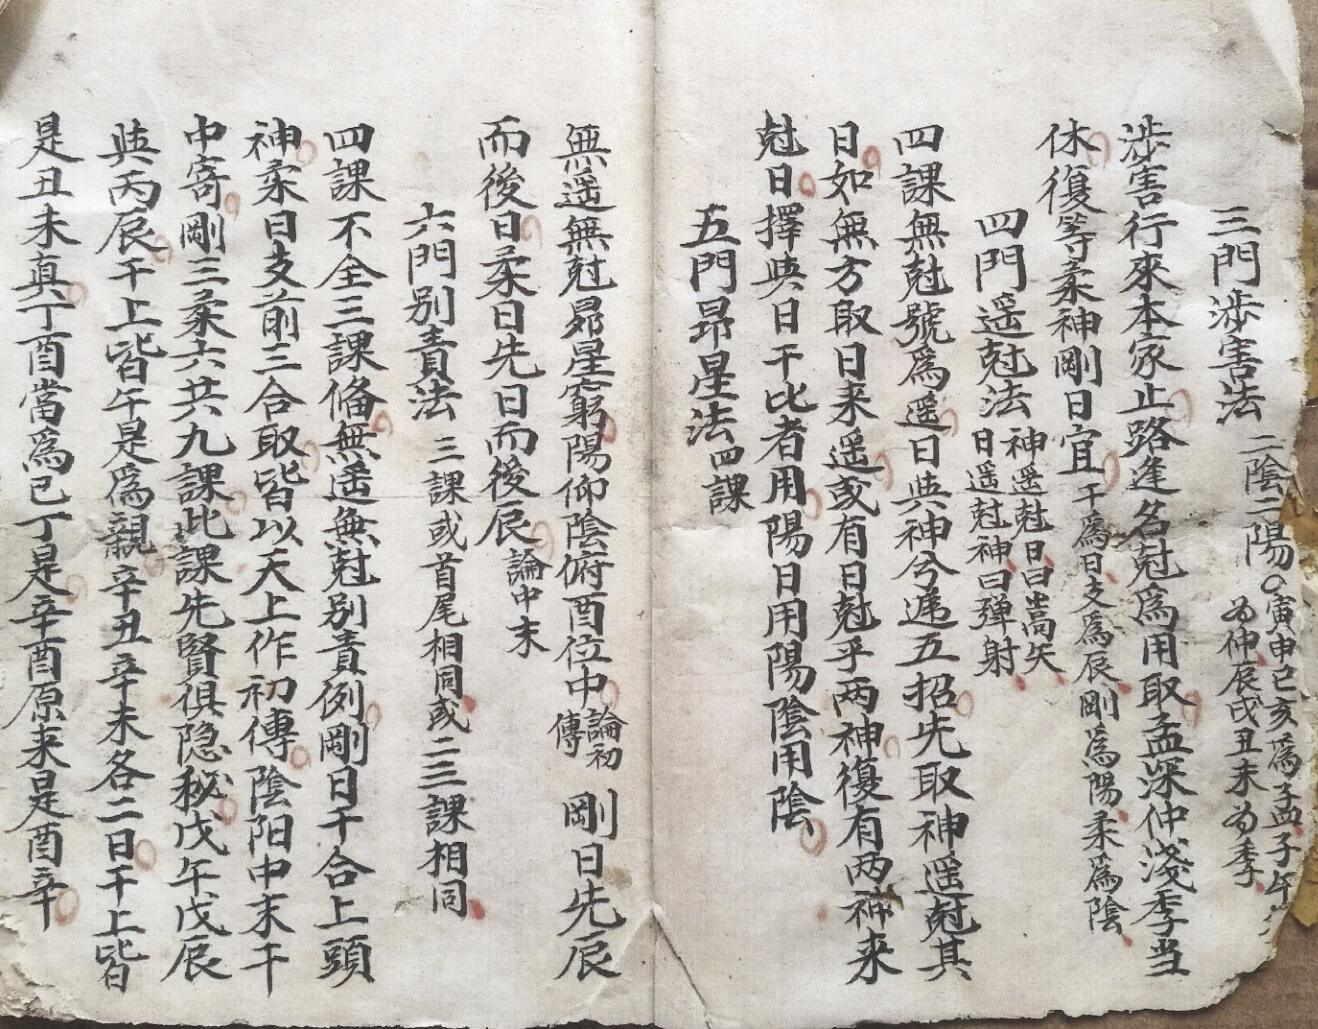 三門涉害法 二陰二陽 寅申巳亥為孟子午
為仲辰戌丑未為季
涉害行來本家止路逢名尅為用取孟深仲淺季当
休復等柔神剛日宜 干為日支為辰剛為陽柔為陰
四門遥尅法 神遥尅日曰蒿矢
日遥尅神曰彈射
四課無尅號為遥日與神兮遞五招先取神遥尅其
日如無方取日来遥或有日尅乎两神復有两神来
尅日擇與日干比者用陽日用陽陰用陰
五門昴星法 四課
無遥無尅昴星窮陽仰陰俯酉位中 論初
傳 剛日先辰
而後日柔日先日而後辰 論中末
六門別責法 三課或首尾相同或二三課相同
四課不全三課俻無遥無尅別責例剛日干合上頭
神柔日支前三合取皆以天上作初傳陰阳中末干
中寄剛三柔六共九課此課先賢俱隐秘戊午戊辰
與丙辰干上皆午是為親辛丑辛未各二日干上皆
是丑未真丁酉當為己丁是辛酉原来是酉辛